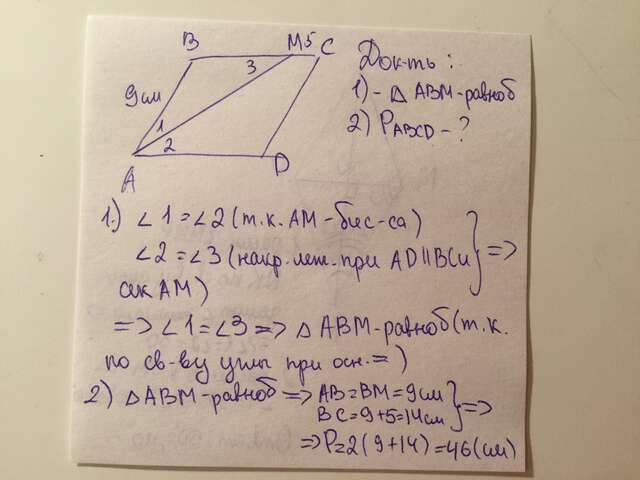 B M 5 C
9см
3
1
2
A D
Док-ть :
1) - △ ABM - равноб
2) PABCD - ?
1.) ∠ 1 = ∠ 2 (т.к. AM - бис-са)
∠ 2 = ∠ 3 (накр. леж. при AD || BC и
сек AM)
=> ∠ 1 = ∠ 3 => △ ABM - равноб (т.к.
по св-ву углы при осн. =)
2) △ ABM - равноб => AB = BM = 9 см
BC = 9 + 5 = 14 см
=>
=> P = 2 ( 9 + 14) = 46 (см)